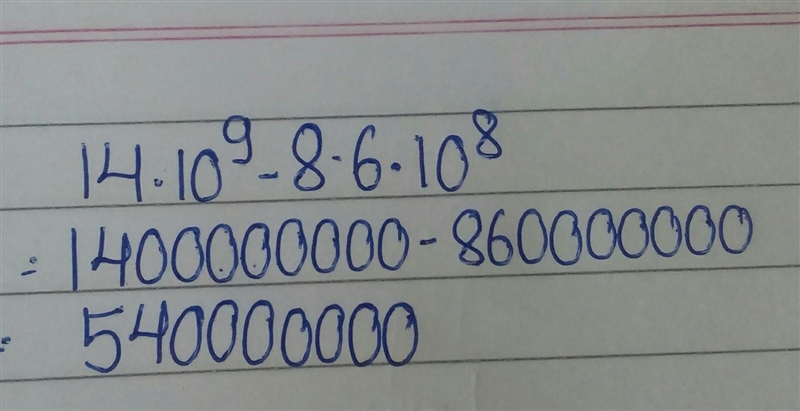 14·10⁹-8·6·10⁸
=1400000000-860000000
= 540000000